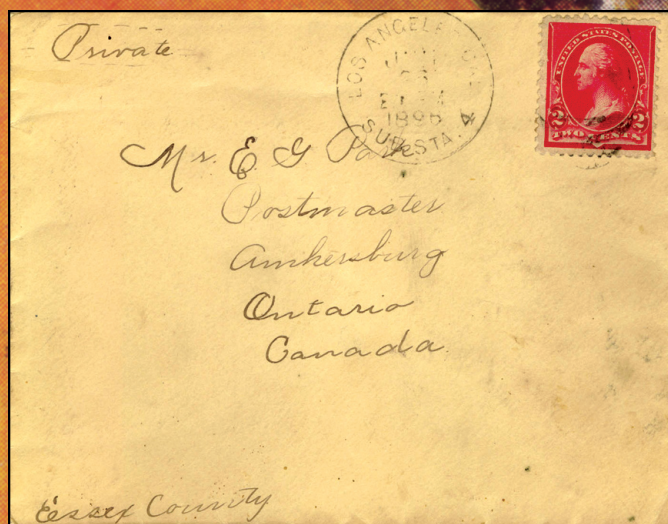 Private
LOS ANGELES, CAL
1898
SUB STA. 4
UNITED STATES POSTAGE
2 2
TWO CENTS
Mr. E G Park
Postmaster
Amhersburg
Ontario
Canada
Essex County